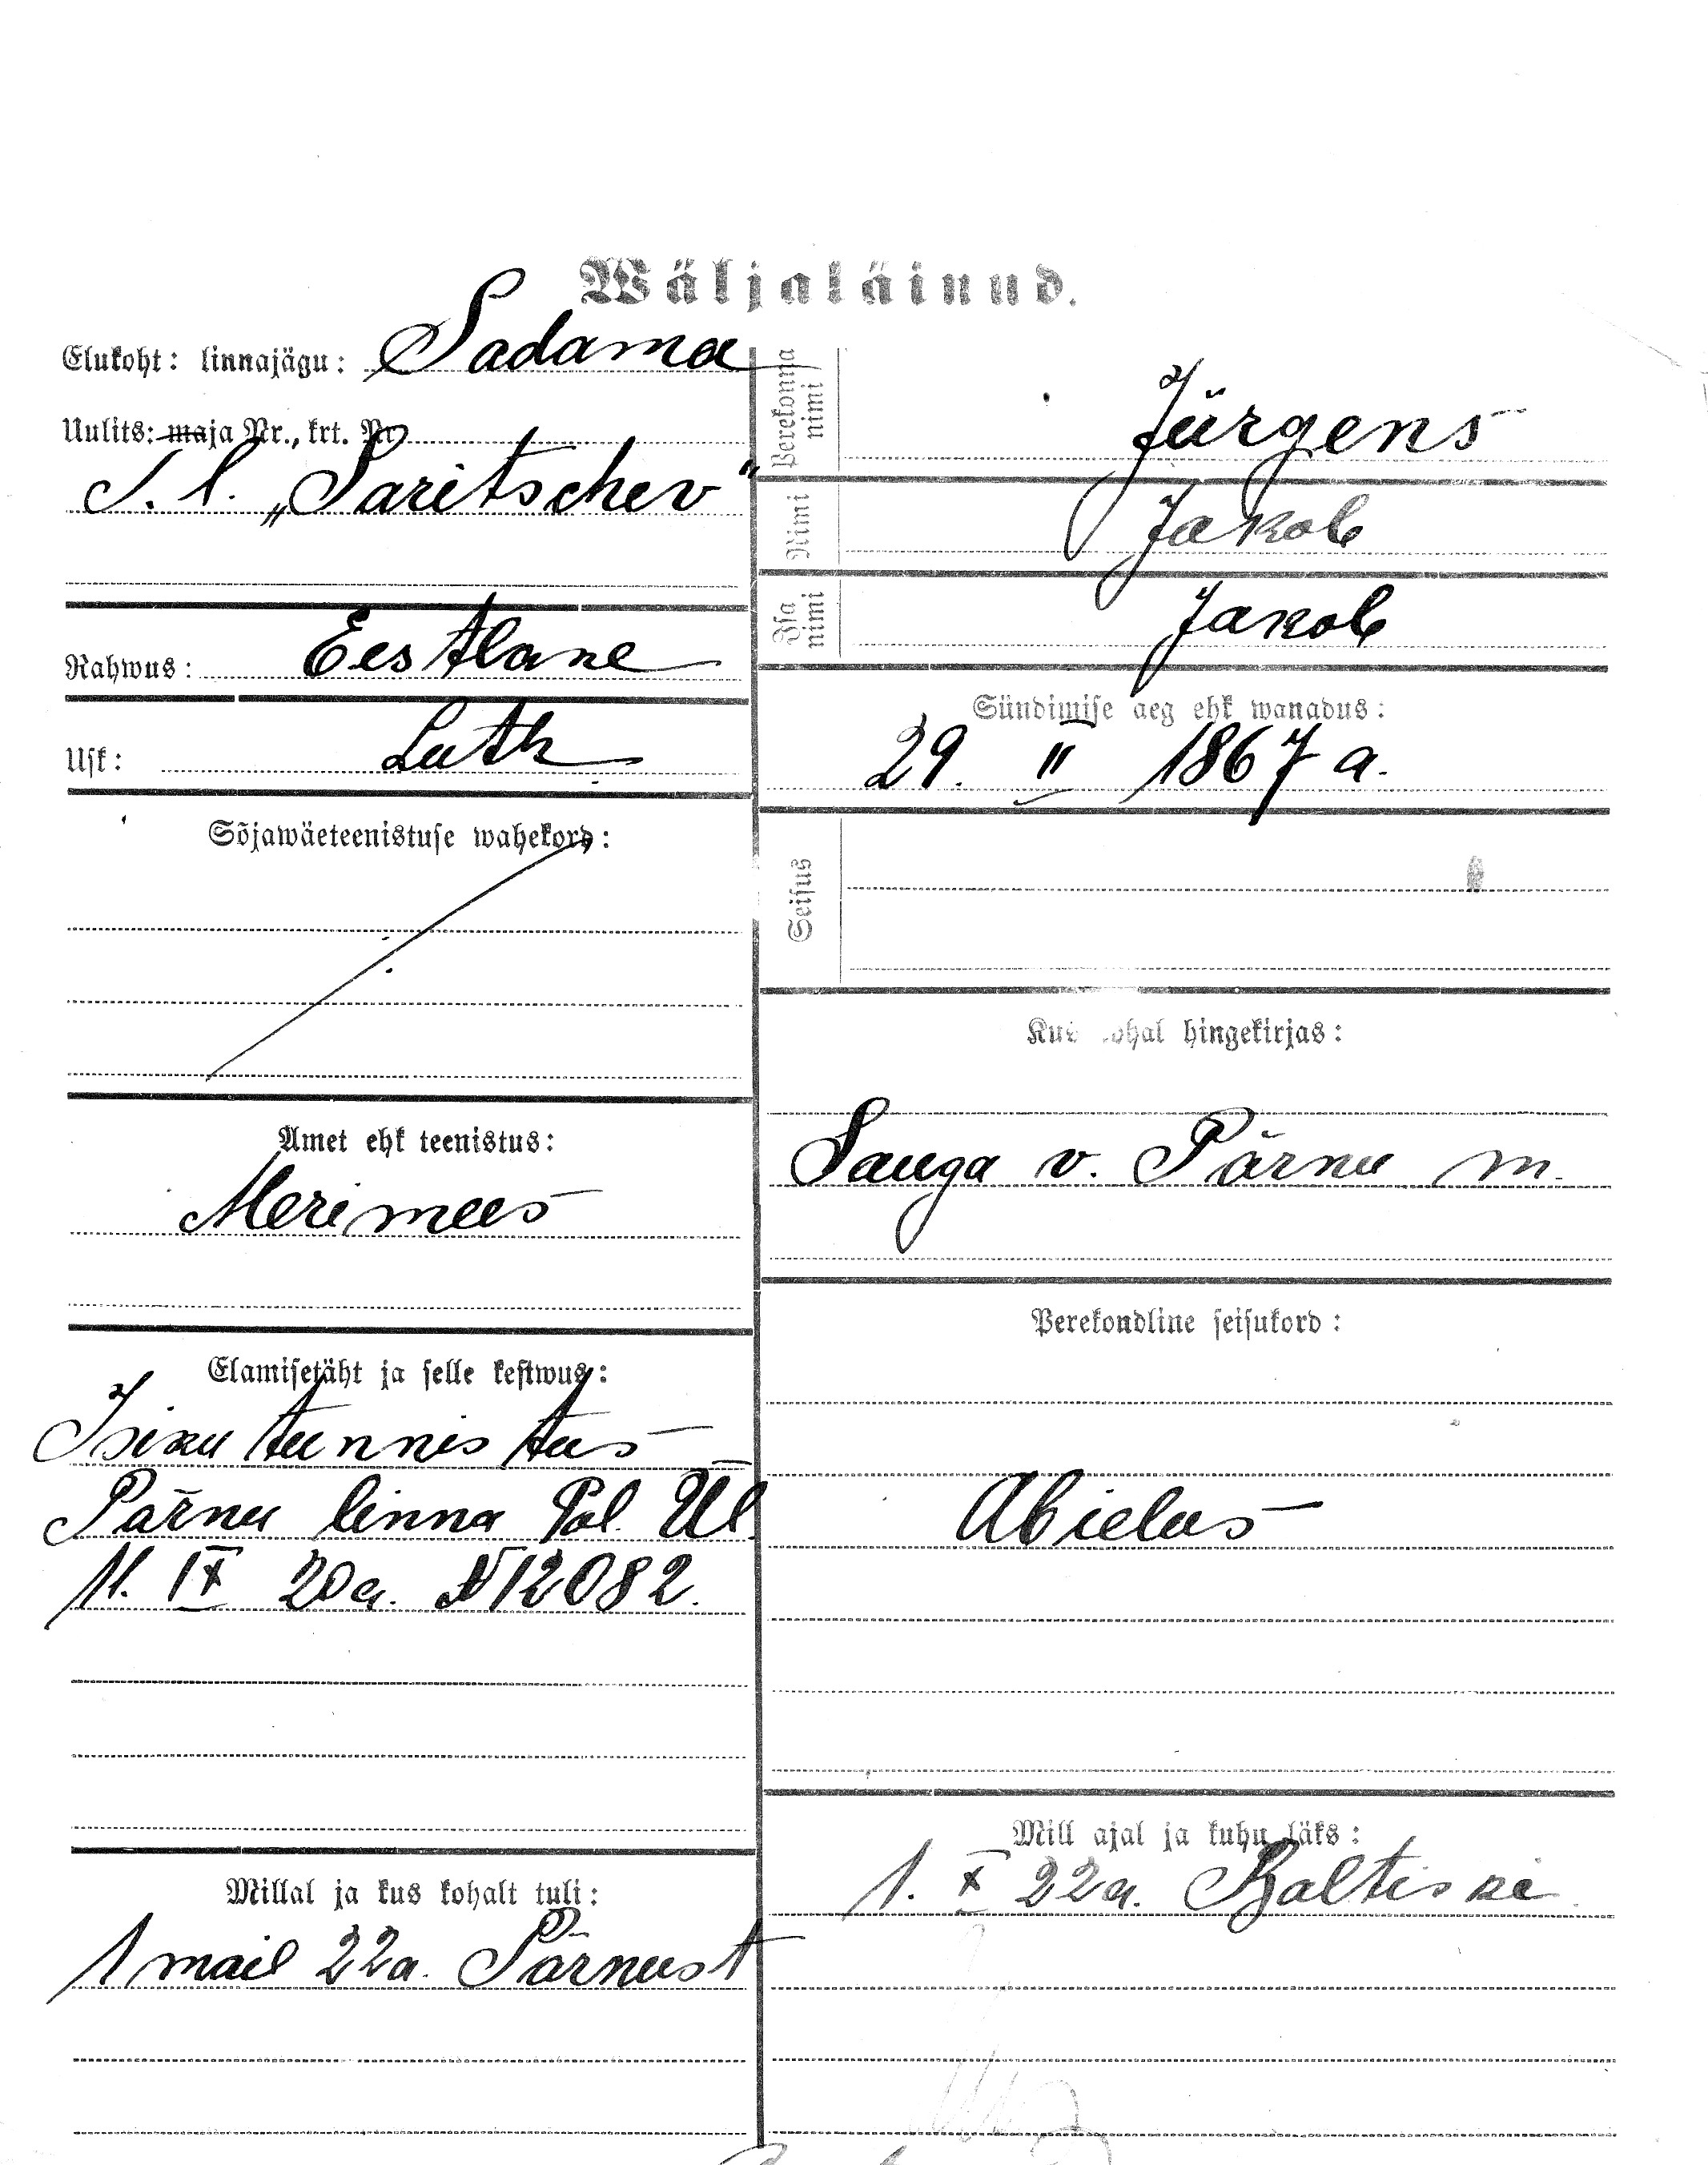 Wäljaläinud.
Elukoht: linnajägu: Sadama
Uulits: maja Nr., krt. Nr.
S. l. „Saritschev"
Rahwus: Eestlane
Usk: Luth
Sõjawäeteenistuse wahekord:
Amet ehk teenistus:
Merimees
Elamisetäht ja selle kestwus:
Isikutunnistus
Pärnu linna Pol. Ül.
11. IX 20a. N 12082.
Millal ja kus kohalt tuli:
1 mail 22a. Pärnust
Perekonna nimi Jürgens
Nimi Jakob
Isa nimi Jakob
Sündimise aeg ehk wanadus:
29. II 1867 a.
Seisus
Kus kohal hingekirjas:
Sauga v. Pärnu m.
Perekondline seisukord:
Abielus
Mill ajal ja kuhu läks:
1. X 22a. Baltiski